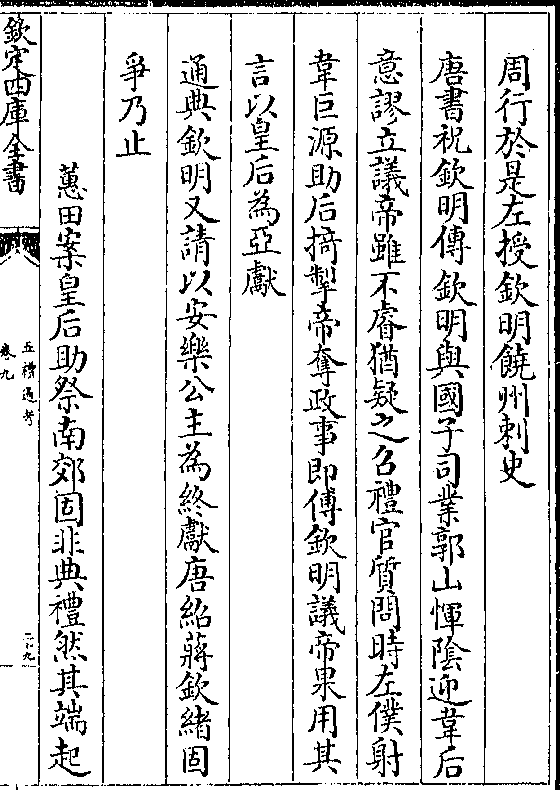 周行於是左授欽明饒州刺史
唐書祝欽明傳欽明與國子司業郭山惲陰迎韋后
意謬立議帝雖不睿猶疑之召禮官質問時左僕射
韋巨源助后掎掣帝奪政事即傅欽明議帝果用其
言以皇后為亞獻
通典欽明又請以安樂公主為終獻唐紹蔣欽緒固
爭乃止
蕙田案皇后助祭南郊固非典禮然其端起
欽定四庫全書
五禮通考
卷九
二十九